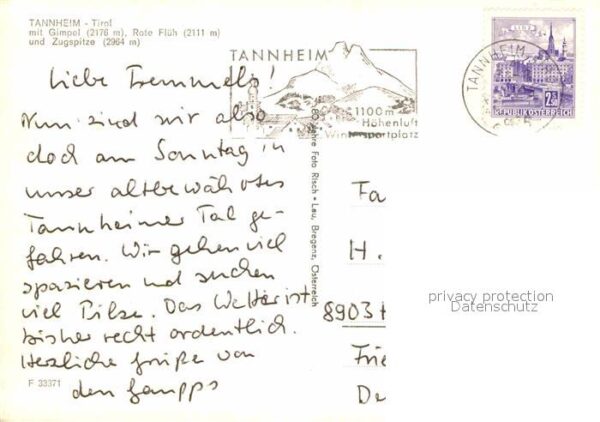 TANNHEIM - Tirol
mit Gimpel (2176 m), Rote Flüh (2111 m)
und Zugspitze (2964 m)
TANNHEIM
1100m
Höhenluft
Wintersportplatz
LINZ
TANNHEIM
2.50
REPUBLIK ÖSTERREICH
Liebe
Nun sind wir also
doch am Sonntag in
unser altbewährtes
Tannheimer Tal ge-
fahren. Wir gehen viel
spazieren und suchen
viel Pilze. Das Wetter ist
bisher recht ordentlich.
Herzliche Grüße von
den
80 Jahre Foto Risch-Lau, Bregenz, Österreich
Fa
H.
8903
Frie
De
privacy protection
Datenschutz
F 33371